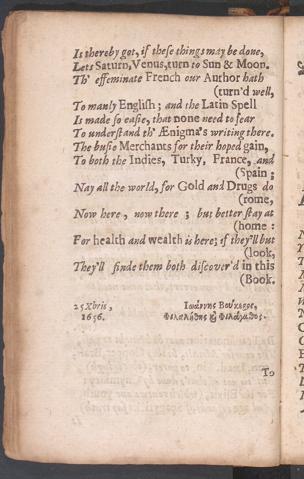 Is thereby got, if these things may be done,
Lets Saturn, Venus, turn to Sun & Moon.
Th' effeminate French our Author hath
(turn'd well,
To manly English; and the Latin Spell
Is made so easie, that none need to fear
To understand th' Ænigma's writing there.
The busie Merchants for their hoped gain,
To both the Indies, Turky, France, and
(Spain;
Nay all the world, for Gold and Drugs do
(rome,
Now here, now there; but better stay at
(home:
For health and wealth is here; if they'll but
(look,
They'll finde them both discover'd in this
(Book.
25 Xbris, Ιωάννης Βούκχερος,
1656. Φιλαλήθης ϗ Φιλόχυμος.
To